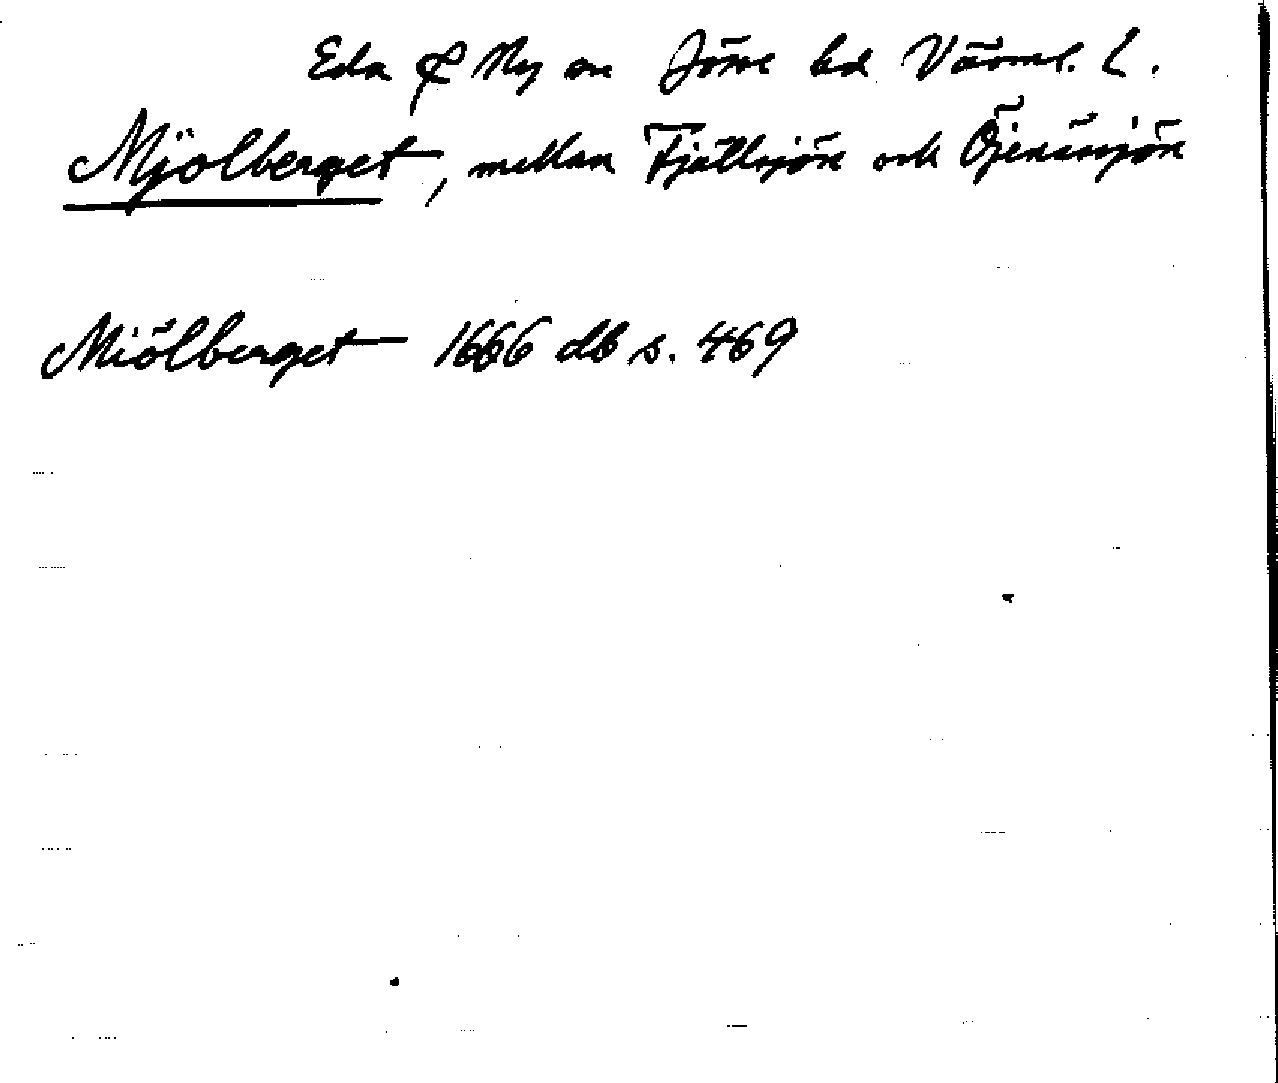 Eda & Ny sn Jösse hd Värml. L.
Mjölberget, mellan Fjällsjön och Öjenässjön
Miölberget 1666 db s. 469